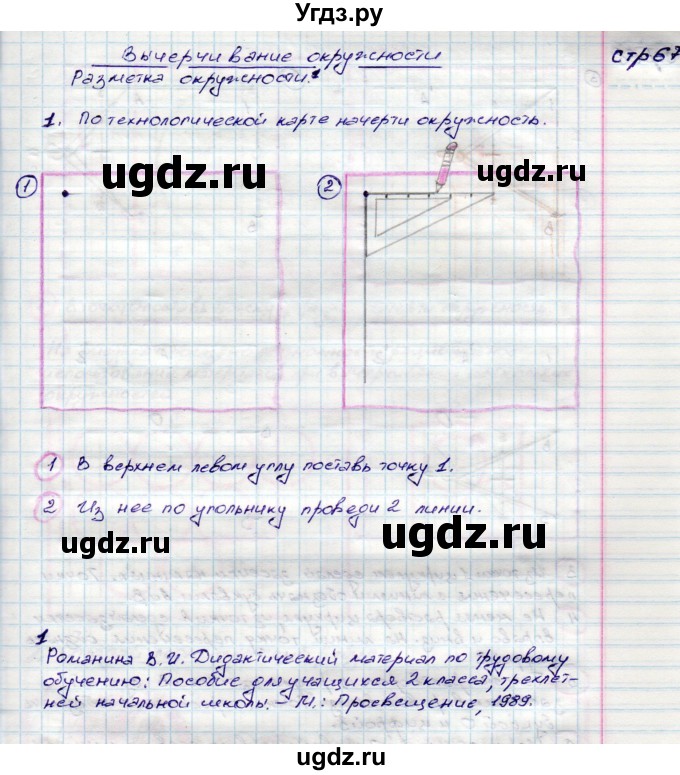 Угдз.ру
Вычерчивание окружности
стр 67
Разметка окружности.1
1. По технологической карте начерти окружность.
ugdz.ru ugdz.ru
1 2
ugdz.ru ugdz.ru
1 В верхнем левом углу поставь точку 1.
2 Из нее по угольнику проведи 2 линии.
ugdz.ru ugdz.ru
1
Романина В.И. Дидактический материал по трудовому
обучению: Пособие для учащихся 2 класса, трехлет-
ней начальной школы. - М.: Просвещение, 1989.
ugdz.ru ugdz.ru
Угдз.ру